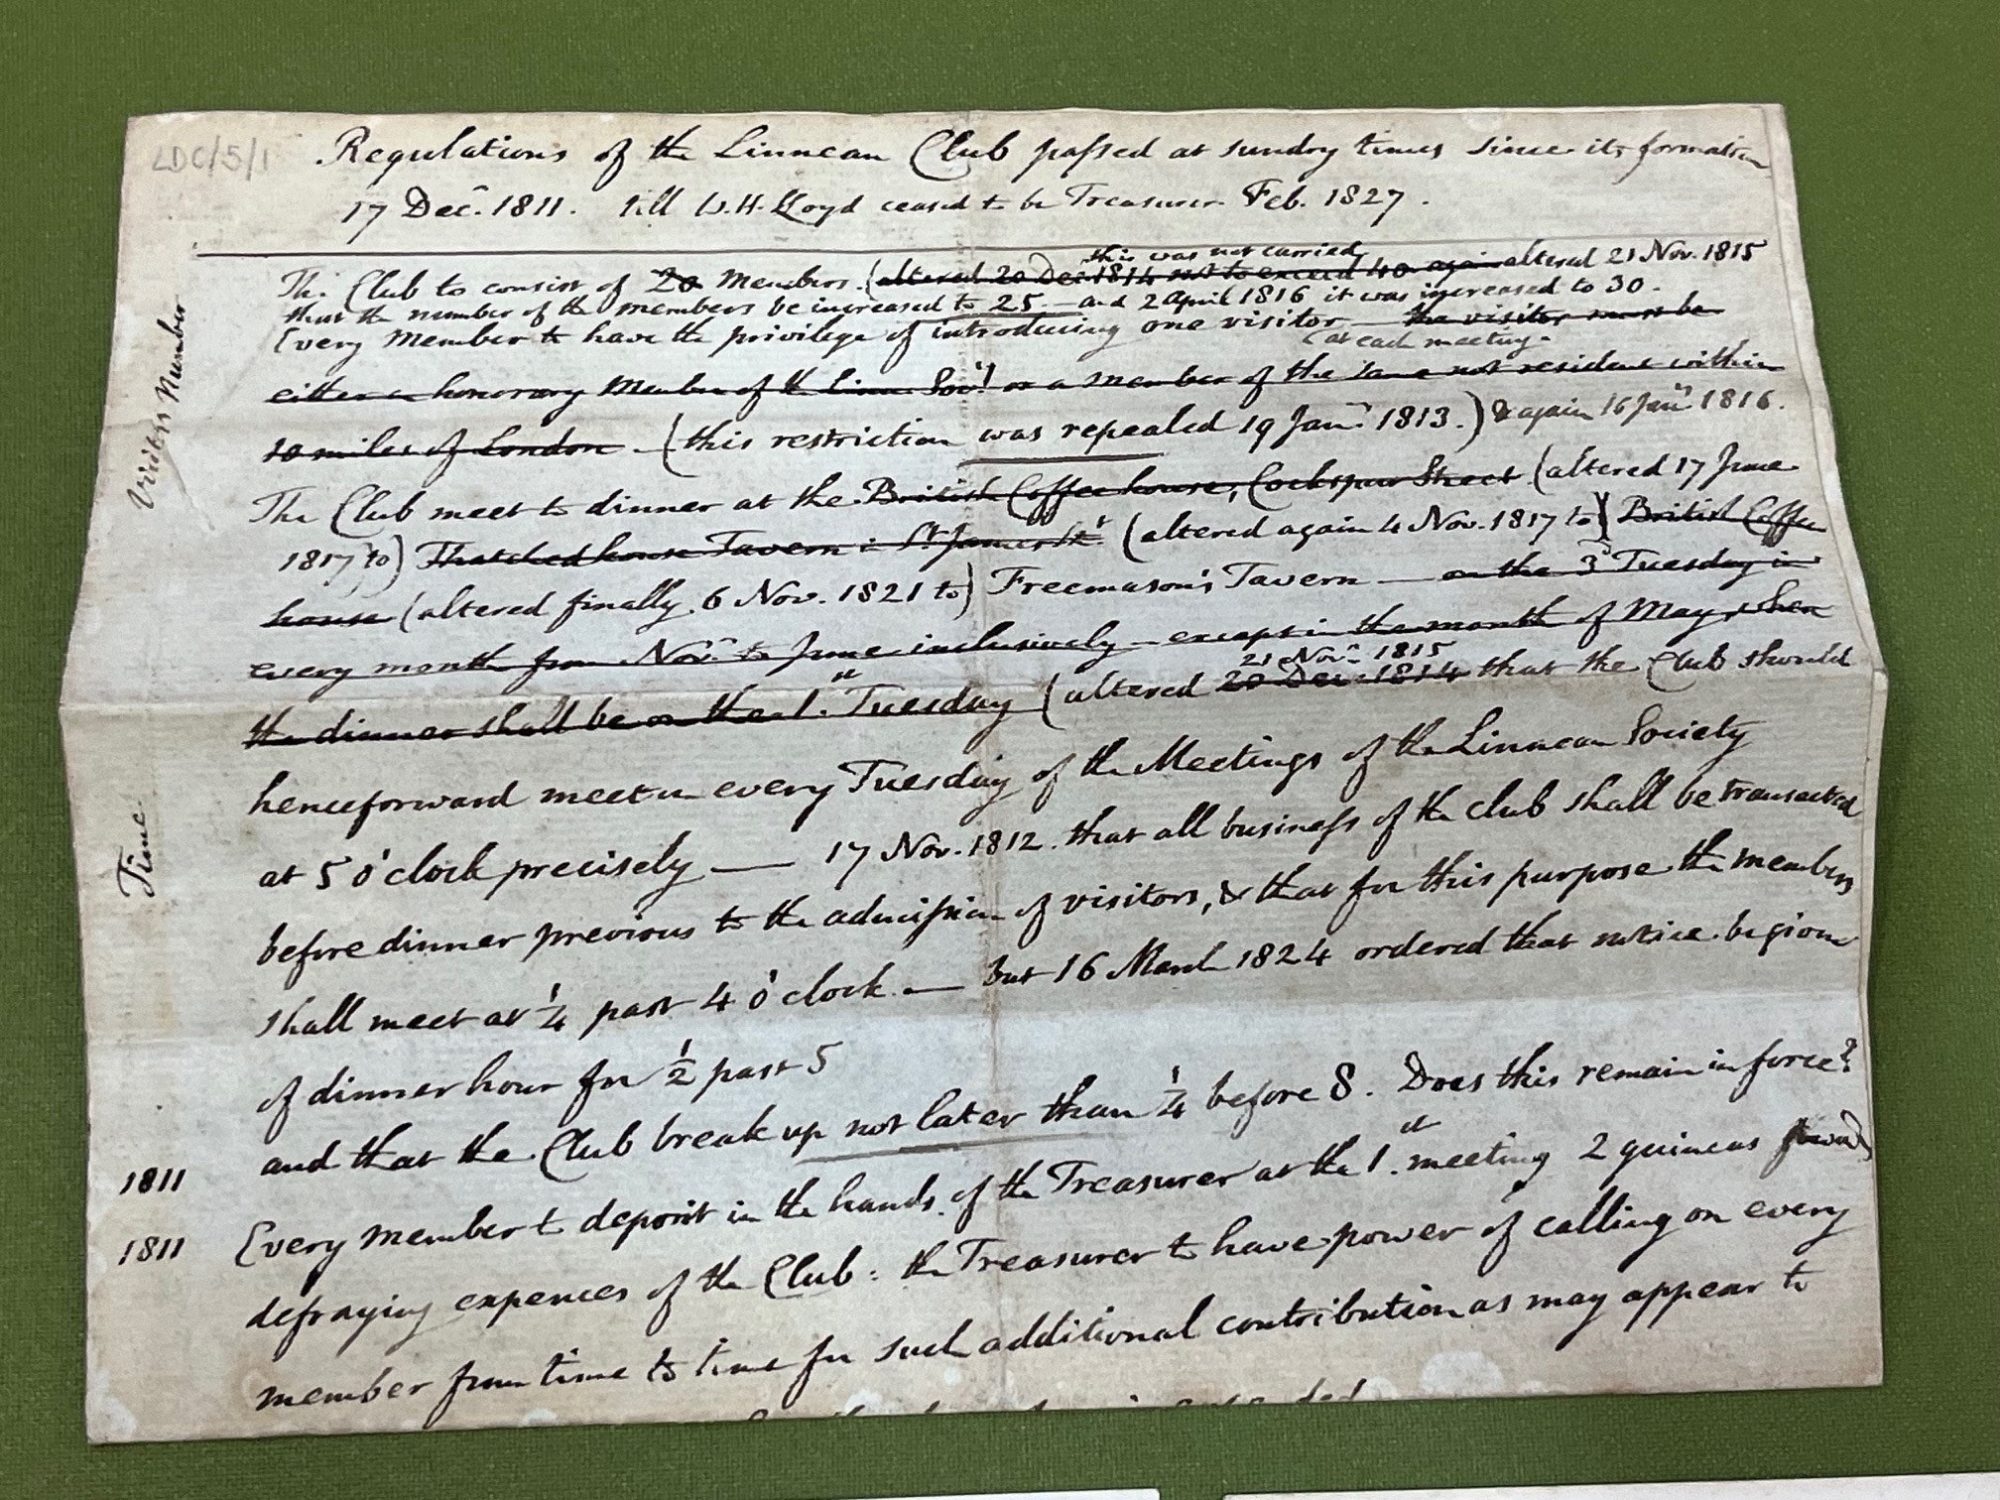 LDC/5/1
Regulations of the Linnean Club passed at sundry times since its formation
17 Decr. 1811. till W. H. Lloyd ceased to be Treasurer Feb. 1827.
this was not carried
The Club to consist of 20 Members. (altered 20 Dec 1814 not to exceed 40 again altered 21 Nov. 1815
that the number of the members be increased to 25 — and 2 April 1816 it was increased to 30.
Every Member to have the privilege of introducing one visitor — the visitor must be
(at each meeting.
either an honorary Member of the Linn. Socy. or a member of the same not resident within
10 miles of London. (this restriction was repealed 19 Jany. 1813.) & again 16 Jany. 1816.
Visitors Number
The Club meet to dinner at the British Coffee house, Cockspur Street (altered 17 June
1817 to) Thatched house Tavern in St. James's St. (altered again 4 Nov. 1817 to) British Coffee
house (altered finally 6 Nov. 1821 to) Freemason's Tavern — on the 3d Tuesday in
every month from Novr. to June inclusively — except in the month of May, when
21 Novr. 1815
the dinner shall be on the 1st Tuesday (altered 20 Dec. 1814 that the Club should
henceforward meet on every Tuesday of the Meetings of the Linnean Society
Time
at 5 o'clock precisely — 17 Nov. 1812. that all business of the club shall be transacted
before dinner previous to the admission of visitors, & that for this purpose the members
shall meet at 1/4 past 4 o'clock. — but 16 March 1824 ordered that notice be given
of dinner hour for 1/2 past 5
1811 and that the Club break up not later than 1/4 before 8. Does this remain in force?
1811 Every member to deposit in the hands of the Treasurer at the 1st meeting 2 guineas towards
defraying expences of the Club: the Treasurer to have power of calling on every
member from time to time for such additional contribution as may appear to